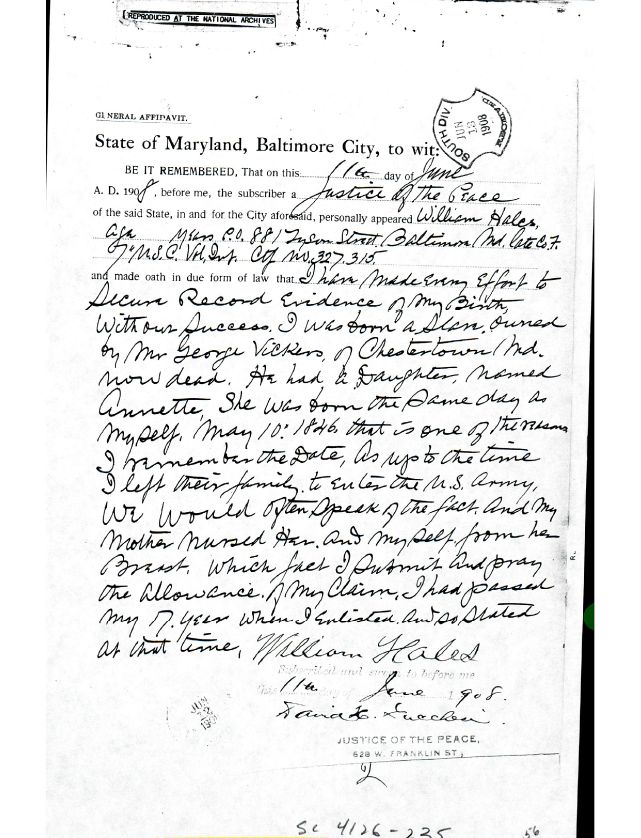 REPRODUCED AT THE NATIONAL ARCHIVES
GENERAL AFFIDAVIT.
SOUTH DIV.
JUN
13
1908
State of Maryland, Baltimore City, to wit:
BE IT REMEMBERED, That on this 11th day of June
A. D. 1908, before me, the subscriber a Justice of the Peace
of the said State, in and for the City aforesaid, personally appeared William Hales,
age years P.O. 881 Tyson Street, Baltimore Md. late Co. F.
7th U.S.C. Vol. Inf. Ctf No. 327.315
and made oath in due form of law that I have made Every Effort to
Secure Record Evidence of My Birth,
Without Success. I was born a Slave, owned
by Mr George Vickers, of Chestertown Md.
now dead. He had, a Daughter, named
Annette, She was born the same day as
myself, May 10th 1846, that is one of the reasons
I remember the Date, As up to the time
I left their family, to Enter the U.S. Army,
We Would often speak of the fact And My
Mother Nursed Her. And myself, from her
Breast. Which fact I Submit And pray
the allowance, of My Claim, I had passed
my 17. year when I Enlisted. And so Stated
at that time, William Hales
Subscribed and sworn to before me
this 11th day of June 1908.
JUSTICE OF THE PEACE,
628 W. FRANKLIN ST.,
JUN
22
SC 4126-235
56